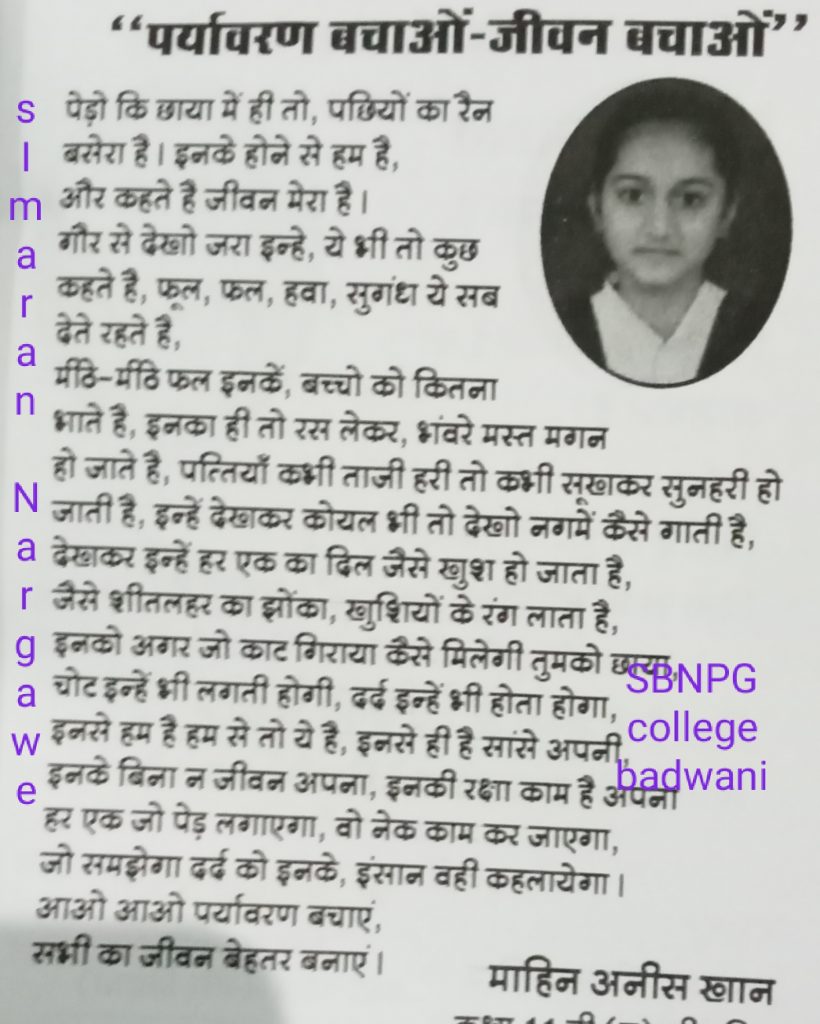 “पर्यावरण बचाओं-जीवन बचाओं”
पेड़ो कि छाया में ही तो, पछियों का रैन
बसेरा है। इनके होने से हम है,
और कहते है जीवन मेरा है।
गौर से देखो जरा इन्हे, ये भी तो कुछ
कहते है, फूल, फल, हवा, सुगंध ये सब
देते रहते है,
मीठि-मीठि फल इनकें, बच्चो को कितना
भाते है, इनका ही तो रस लेकर, भंवरे मस्त मगन
हो जाते है, पत्तियाँ कभी ताजी हरी तो कभी सूखाकर सुनहरी हो
जाती है, इन्हें देखाकर कोयल भी तो देखो नगमें कैसे गाती है,
देखाकर इन्हें हर एक का दिल जैसे खुश हो जाता है,
जैसे शीतलहर का झोंका, खुशियों के रंग लाता है,
इनको अगर जो काट गिराया कैसे मिलेगी तुमको छाया,
चोट इन्हें भी लगती होगी, दर्द इन्हें भी होता होगा,
इनसे हम है हम से तो ये है, इनसे ही है सांसे अपनी,
इनके बिना न जीवन अपना, इनकी रक्षा काम है अपना
हर एक जो पेड़ लगाएगा, वो नेक काम कर जाएगा,
जो समझेगा दर्द को इनके, इंसान वही कहलायेगा।
आओ आओ पर्यावरण बचाएं,
सभी का जीवन बेहतर बनाएं।
माहिन अनीस खान
sImaran Nargawe
SBNPG
college
badwani